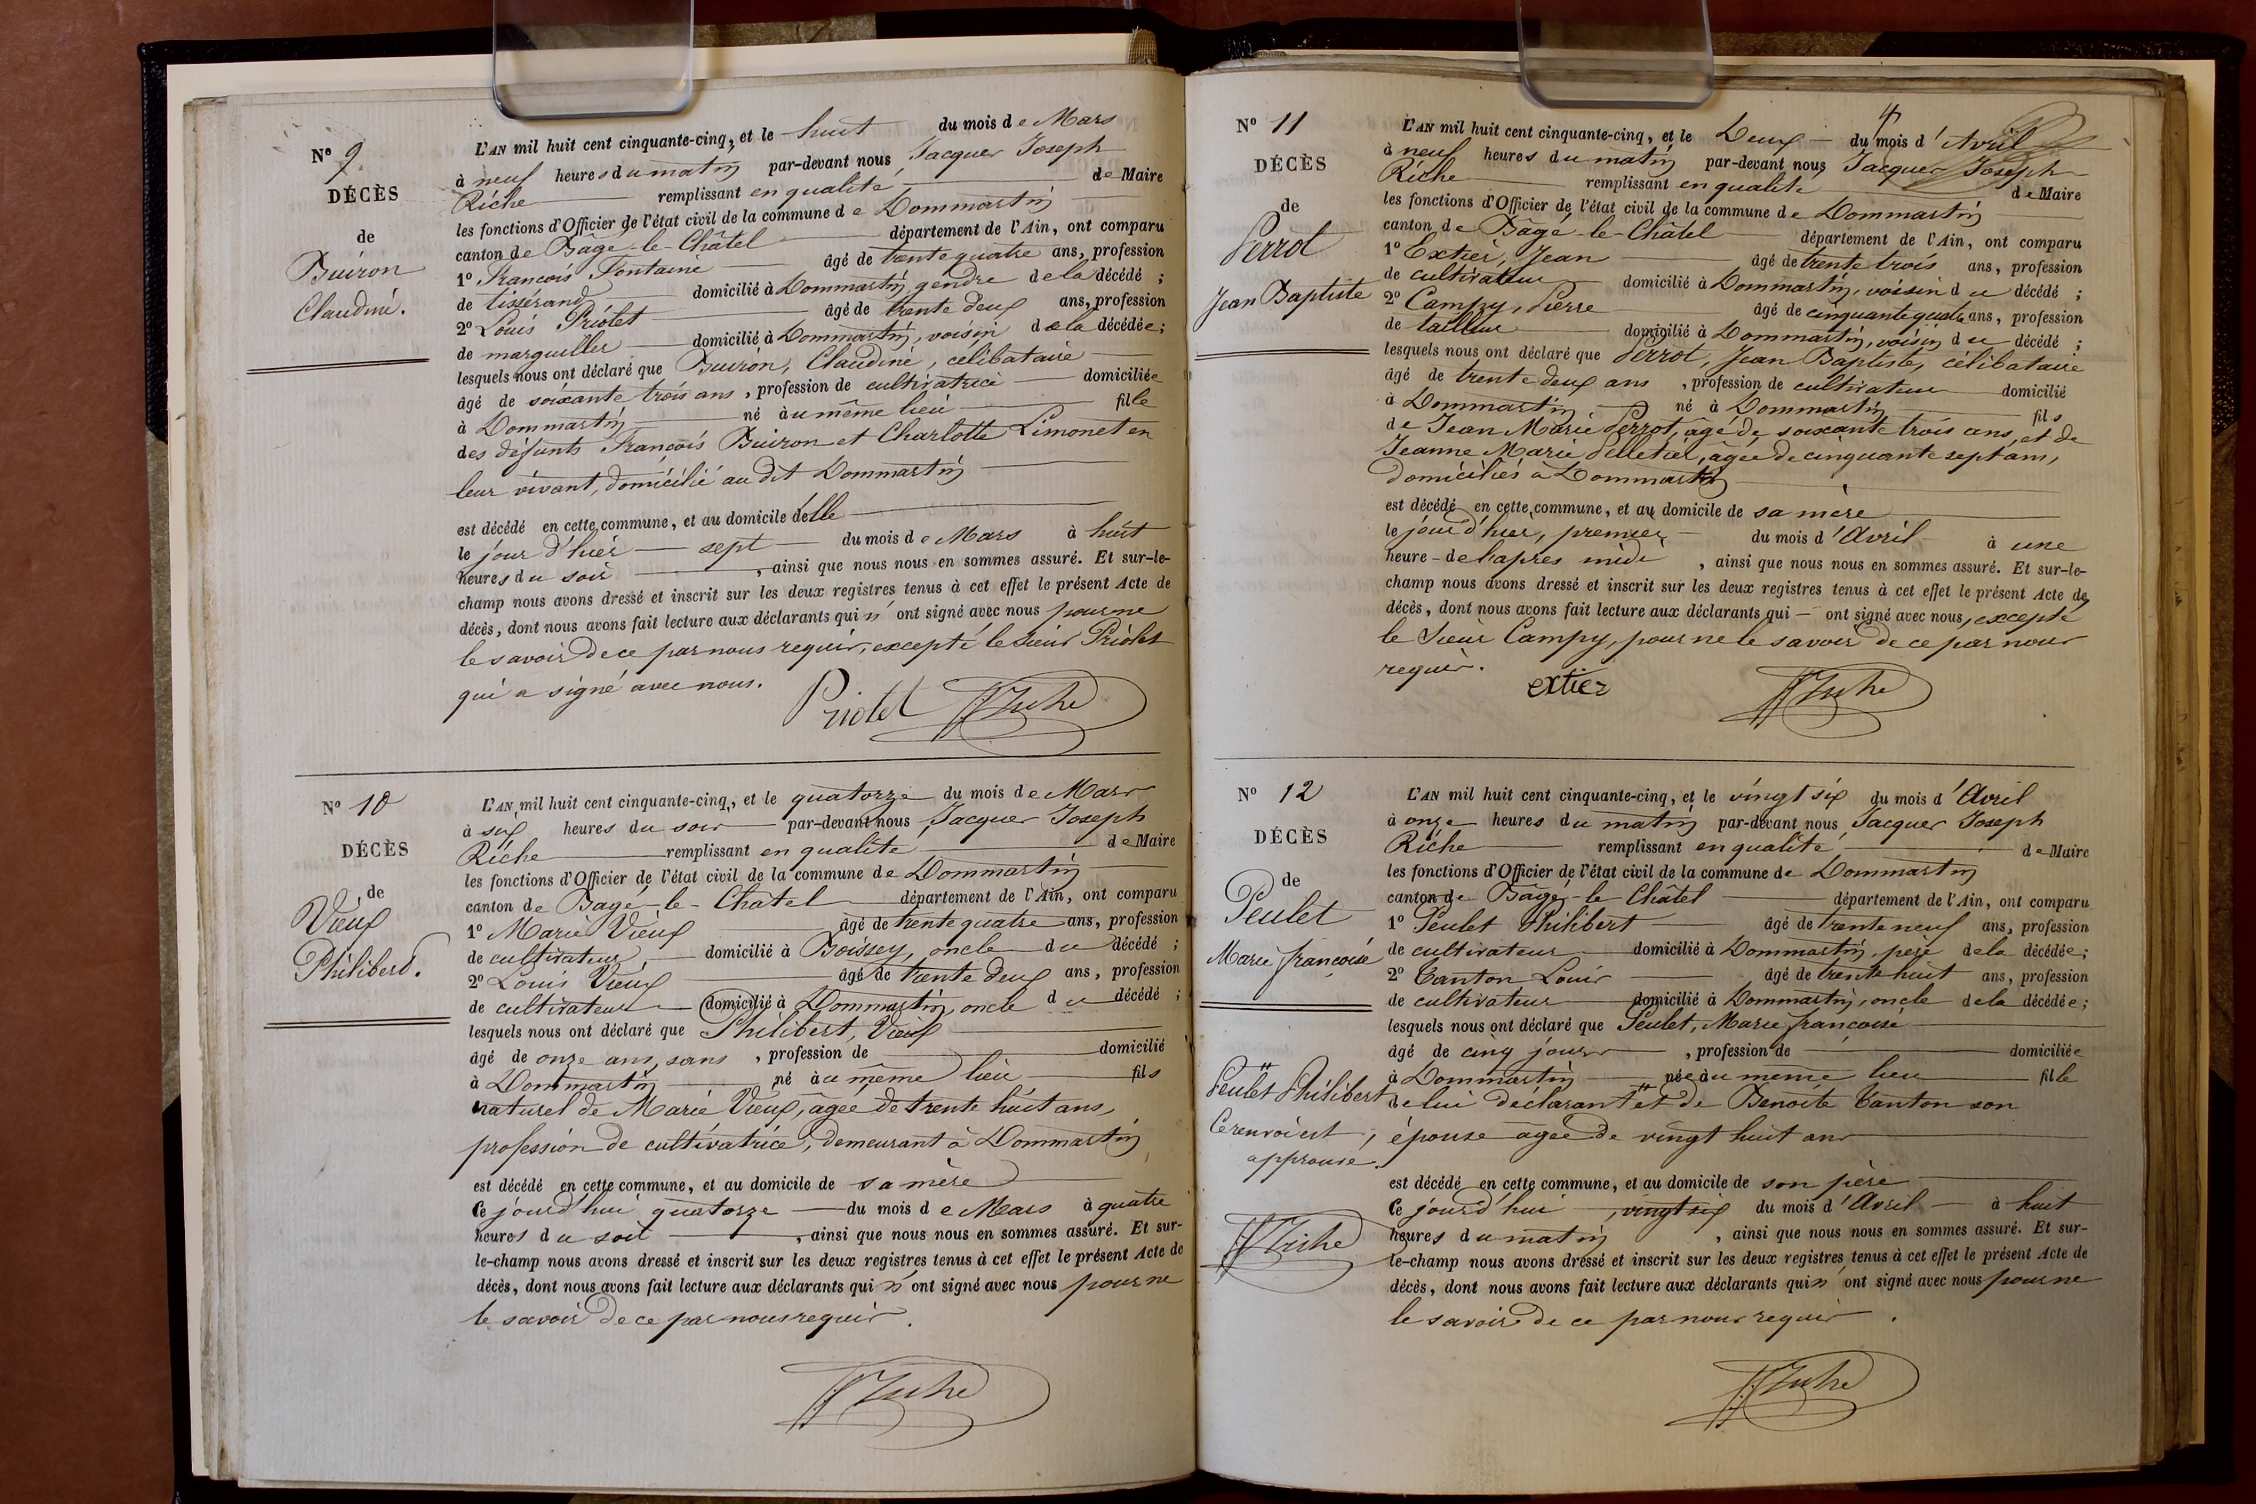 N° 9
DÉCÈS
de
Buiron
Claudine.
L'AN mil huit cent cinquante-cinq, et le huit du mois de Mars
à neuf heures du matin par-devant nous Jacques Joseph
Riche remplissant en qualité de Maire
les fonctions d'Officier de l'état civil de la commune de Dommartin
canton de Bâgé-le-Châtel département de l'Ain, ont comparu
1° François Fontaine âgé de trente quatre ans, profession
de tisserand domicilié à Dommartin, gendre de la décédé ;
2° Louis Priolet âgé de trente deux ans, profession
de marguiller domicilié à Dommartin, voisin de la décédée ;
lesquels nous ont déclaré que Buiron, Claudine, célibataire
âgé de soixante trois ans, profession de cultivatrice domiciliée
à Dommartin né au même lieu fille
des défunts François Buiron et Charlotte Limonet en
leur vivant, domicilié au dit Dommartin
est décédé en cette commune, et au domicile d'elle
le jour d'hier sept du mois de Mars à huit
heures du soir, ainsi que nous nous en sommes assuré. Et sur-le-
champ nous avons dressé et inscrit sur les deux registres tenus à cet effet le présent Acte de
décès, dont nous avons fait lecture aux déclarants qui n'ont signé avec nous pour ne
le savoir de ce par nous requis, excepté le Sieur Priolet
qui a signé avec nous.
Priolet JJRiche
N° 10
DÉCÈS
de
Vieux
Philibert.
L'AN mil huit cent cinquante-cinq, et le quatorze du mois de Mars
à six heures du soir par-devant nous Jacques Joseph
Riche remplissant en qualité de Maire
les fonctions d'Officier de l'état civil de la commune de Dommartin
canton de Bagé-le-Chatel département de l'Ain, ont comparu
1° Marie Vieux âgé de trente quatre ans, profession
de cultivateur, domicilié à Boissey, oncle du décédé ;
2° Louis Vieux âgé de trente deux ans, profession
de cultivateur domicilié à Dommartin, oncle du décédé ;
lesquels nous ont déclaré que Philibert, Vieux
âgé de onze ans, sans, profession de domicilié
à Dommartin né au même lieu fils
naturel de Marie Vieux, âgée de trente huit ans,
profession de cultivatrice, demeurant à Dommartin
est décédé en cette commune, et au domicile de sa mère
Ce jourd'hui quatorze du mois de Mars à quatre
heures du soir, ainsi que nous nous en sommes assuré. Et sur-
le-champ nous avons dressé et inscrit sur les deux registres tenus à cet effet le présent Acte de
décès, dont nous avons fait lecture aux déclarants qui n'ont signé avec nous pour ne
le savoir de ce par nous requis.
JJRiche
4
N° 11
DÉCÈS
de
Perrot
Jean Baptiste
L'AN mil huit cent cinquante-cinq, et le Deux du mois d'Avril
à neuf heures du matin par-devant nous Jacques Joseph
Riche remplissant en qualité de Maire
les fonctions d'Officier de l'état civil de la commune de Dommartin
canton de Bâgé-le-Châtel département de l'Ain, ont comparu
1° Extier, Jean âgé de trente trois ans, profession
de cultivateur domicilié à Dommartin, voisin du décédé ;
2° Campy, Pierre âgé de cinquante quatre ans, profession
de tailleur domicilié à Dommartin, voisin du décédé ;
lesquels nous ont déclaré que Perrot, Jean Baptiste, célibataire
âgé de trente deux ans, profession de cultivateur domicilié
à Dommartin né à Dommartin fils
de Jean Marie Perrot, âgé de soixante trois ans, et de
Jeanne Marie Pelletier, âgée de cinquante sept ans,
domiciliés à Dommartin
est décédé en cette commune, et au domicile de sa mère
le jour d'hier, premier du mois d'Avril à une
heure de l'après midi, ainsi que nous nous en sommes assuré. Et sur-le-
champ nous avons dressé et inscrit sur les deux registres tenus à cet effet le présent Acte de
décès, dont nous avons fait lecture aux déclarants qui — ont signé avec nous, excepté
le Sieur Campy, pour ne le savoir de ce par nous
requis.
extier JJRiche
N° 12
DÉCÈS
de
Peulet
Marie françoise
L'AN mil huit cent cinquante-cinq, et le vingt six du mois d'Avril
à onze heures du matin par-devant nous Jacques Joseph
Riche remplissant en qualité de Maire
les fonctions d'Officier de l'état civil de la commune de Dommartin
canton de Bâgé-le Châtel département de l'Ain, ont comparu
1° Peulet Philibert âgé de trente neuf ans, profession
de cultivateur domicilié à Dommartin, père de la décédée ;
2° Canton Louis âgé de trente huit ans, profession
de cultivateur domicilié à Dommartin, oncle de la décédée ;
lesquels nous ont déclaré que Peulet, Marie françoise
âgé de cinq jours, profession de domiciliée
à Dommartin née au même lieu fille
de lui déclarant et de Benoite Canton son
épouse âgée de vingt huit ans
est décédé en cette commune, et au domicile de son père
Ce jourd'hui, vingt six du mois d'Avril à huit
heures du matin, ainsi que nous nous en sommes assuré. Et sur-
le-champ nous avons dressé et inscrit sur les deux registres tenus à cet effet le présent Acte de
décès, dont nous avons fait lecture aux déclarants qui n'ont signé avec nous pour ne
le savoir de ce par nous requis.
JJRiche
Peulet Philibert
Ce renvoi est
approuvé.
JJRiche